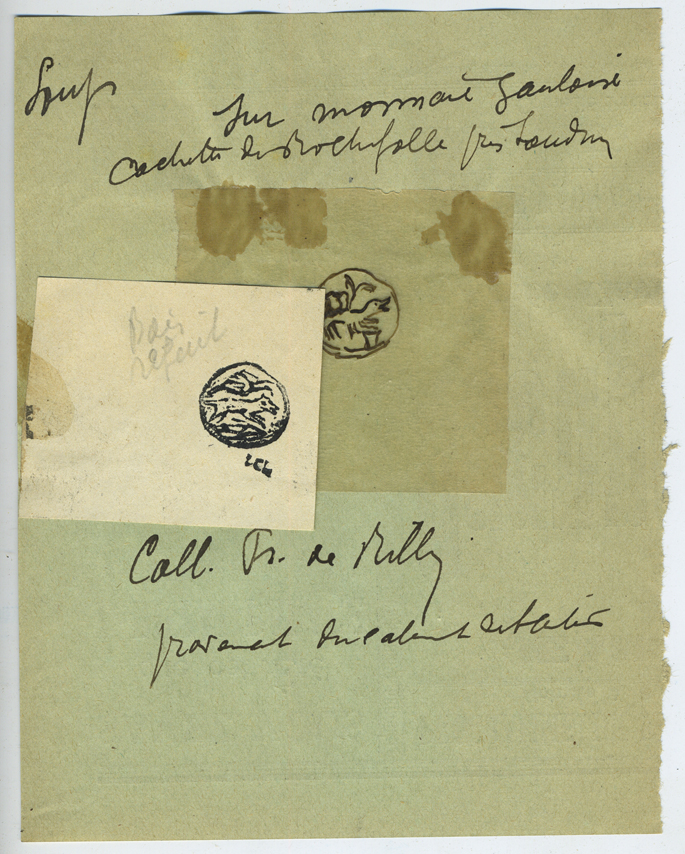 Loup
Sur monnaie gauloise
Cachette de Rochefolle près Loudun
Bois
refait
Coll. Fr. de Rilly
provenant du cabinet